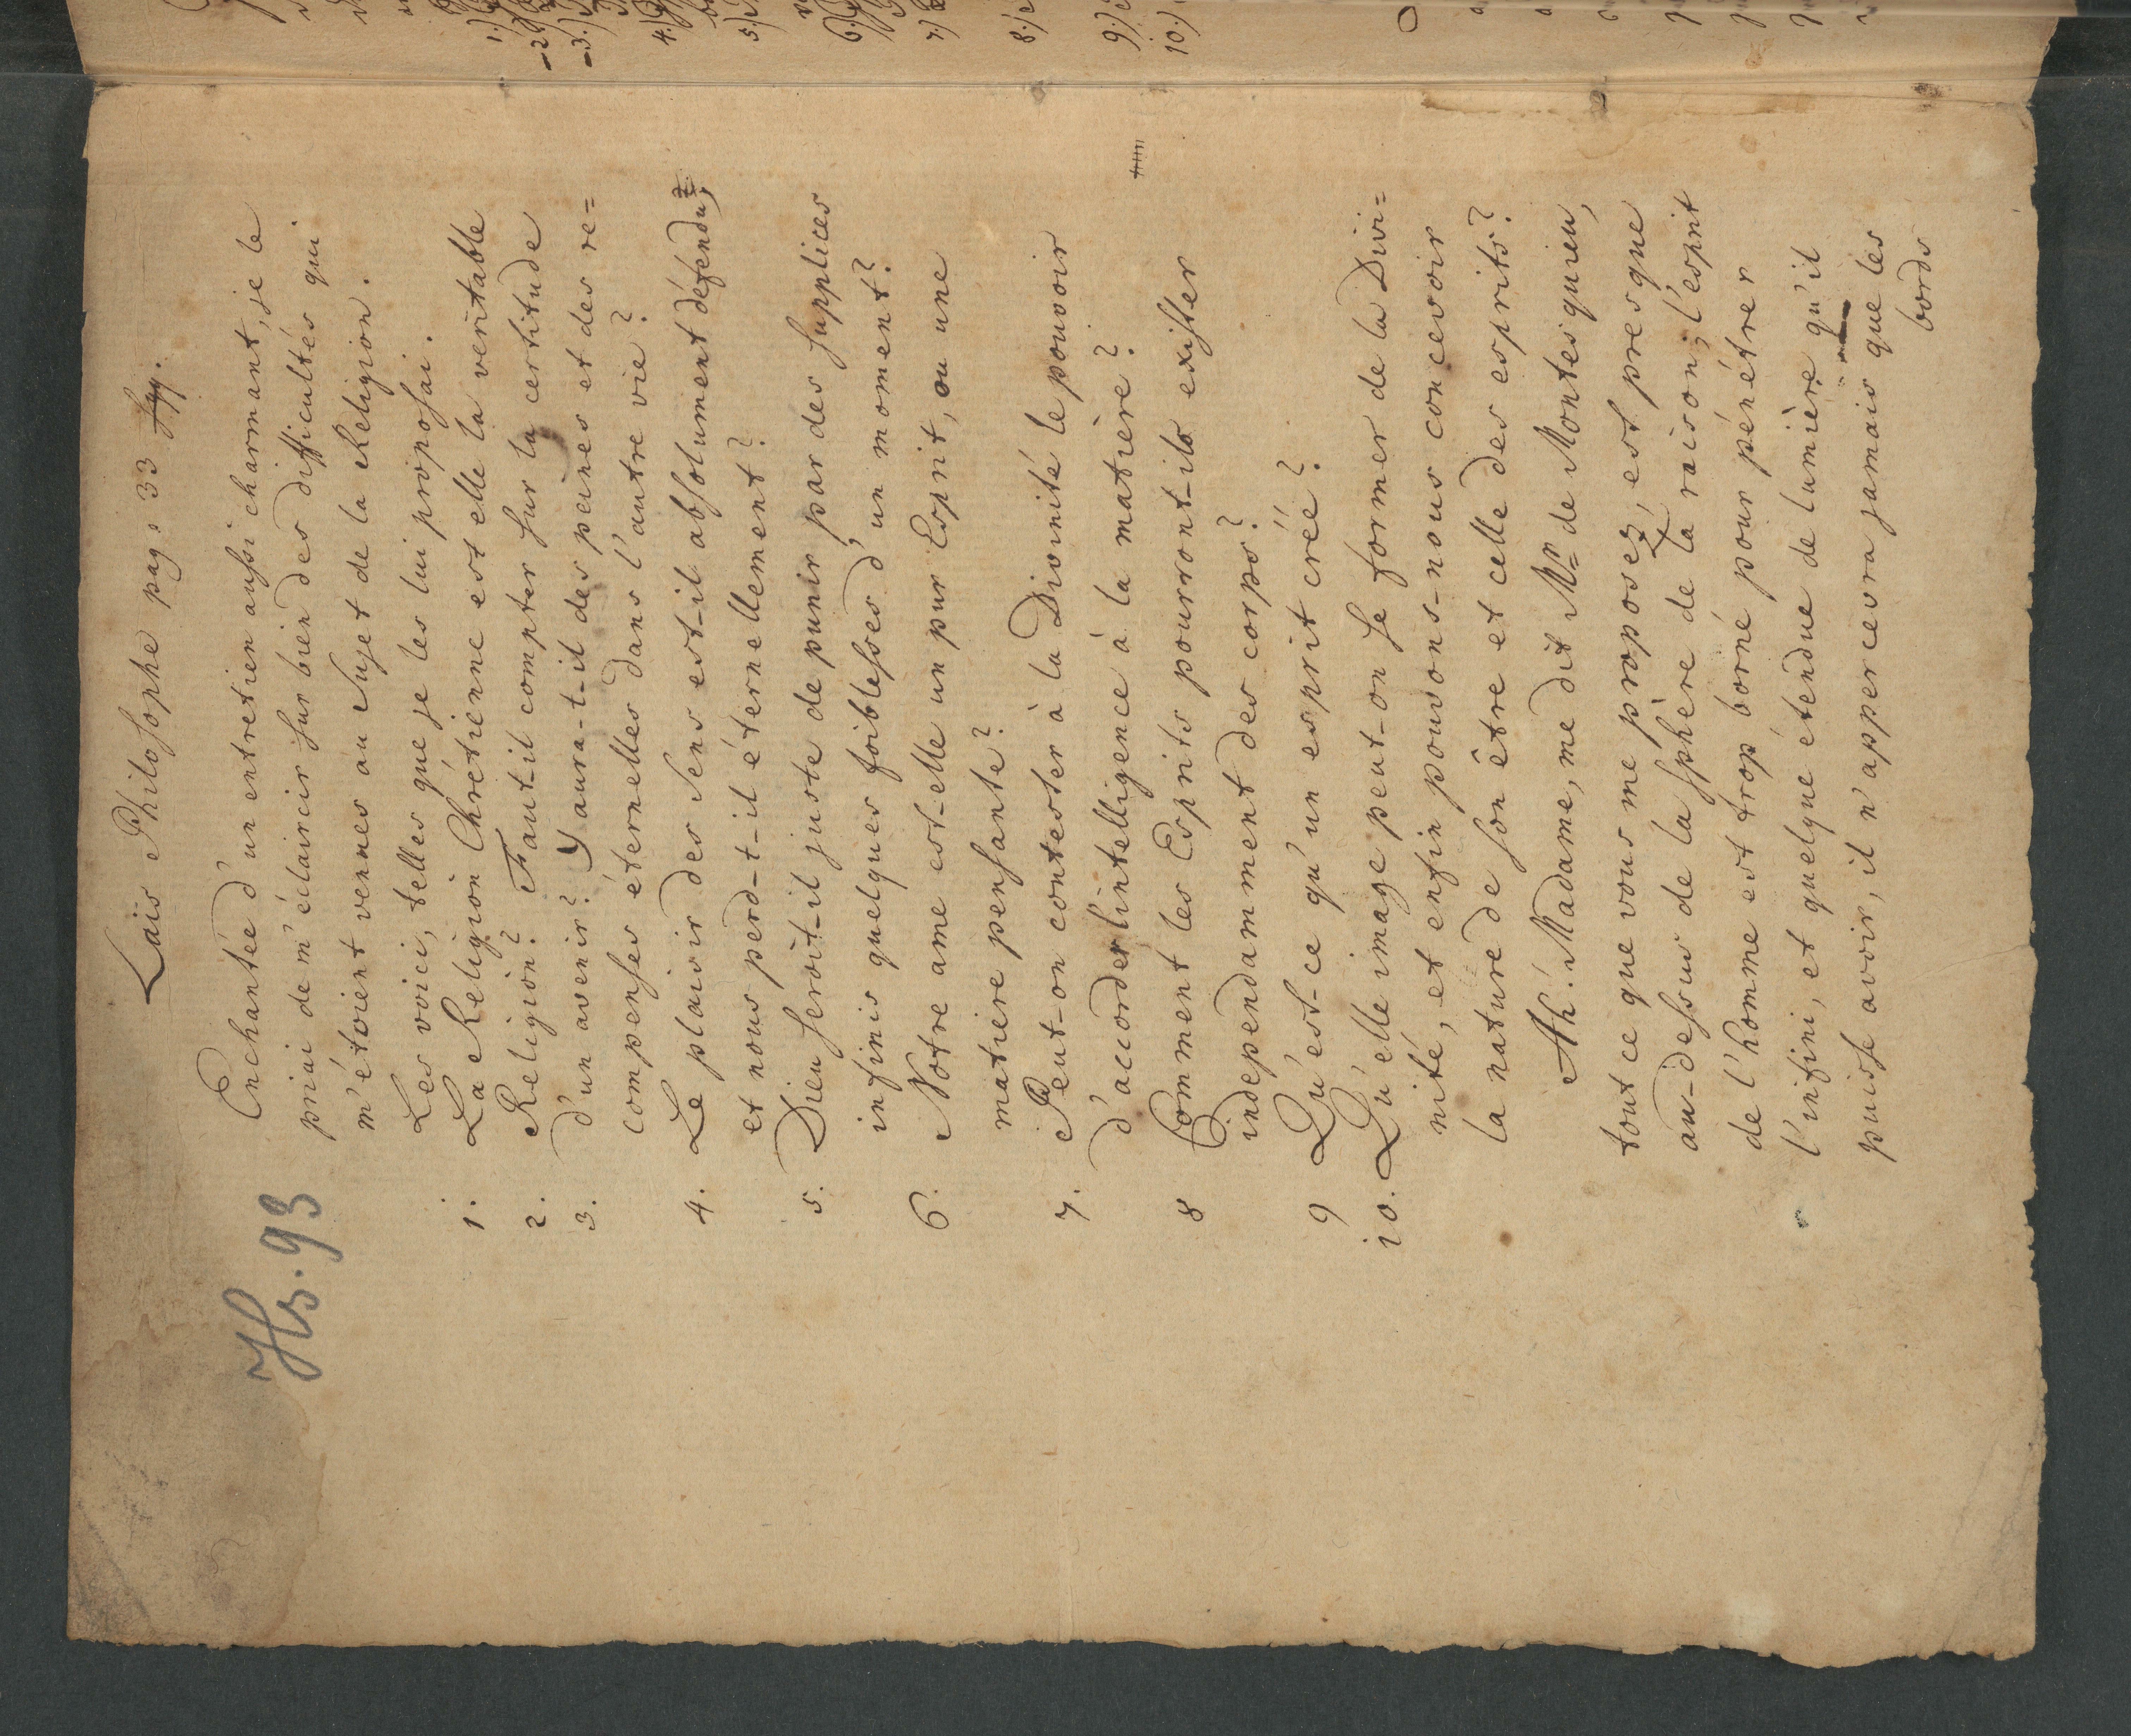 Laïs Philosophe pag. 33 sqq.
Hs. 93
Enchantée d'un entretien aussi charmant, je le
priai de m'éclaircir sur bien des difficultés qui
m'étoient venues au Sujet de la Religion.
Les voici, telles que je les lui proposai.
1. La Religion Chrétienne est elle la véritable
2. Religion? Faut-il compter sur la certitude
3. d'un avenir? Y aura-t-il des peines et des re=
compenses éternelles dans l'autre vie?
4. Le plaisir des Sens est-il absolument défendu,
et nous perd-t-il éternellement?
5. Dieu seroit-il juste de punir par des supplices
infinis quelques foiblesses d'un moment?
6. Notre ame est-elle un pur Esprit, ou une
matiere pensante?
7. Peut-on contester à la Divinité le pouvoir
d'accorder l'intelligence à la matière?
8 Comment les Esprits pourront-ils exister
indépendamment des corps?
9 Qu'est-ce qu'un esprit créé?
10. Qu'elle image peut-on se former de la Divi=
nité, et enfin pouvons-nous concevoir
la nature de son être et celle des esprits?
Ah! Madame, me dit Mr de Montesquieu,
tout ce que vous me proposez, est presque
au-dessus de la sphère de la raison; l'esprit
de l'homme est trop borné pour pénétrer
l'infini, et quelque étendue de lumière qu'il
puisse avoir, il n'appercevra jamais que les
bords